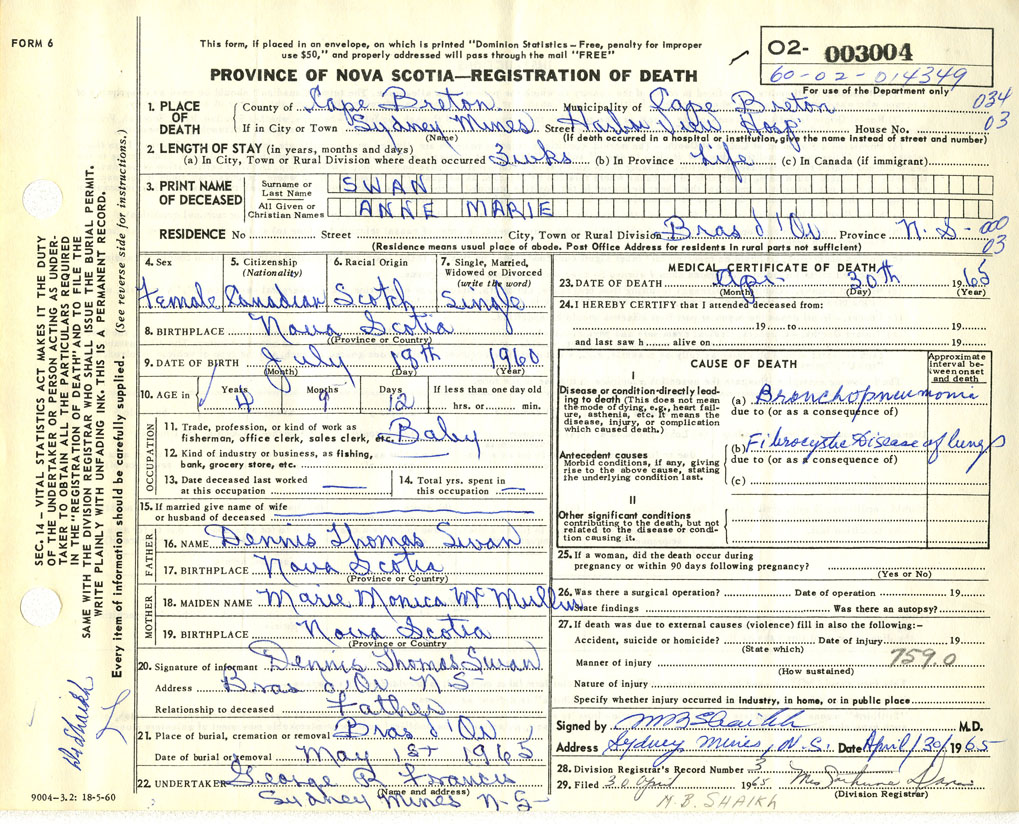 FORM 6
This form, if placed in an envelope, on which is printed "Dominion Statistics – Free, penalty for improper
use $50," and properly addressed will pass through the mail "FREE"
PROVINCE OF NOVA SCOTIA—REGISTRATION OF DEATH
O2- 003004
60-02-014349
For use of the Department only
034
03
1. PLACE OF DEATH
County of Cape Breton Municipality of Cape Breton
If in City or Town Sydney Mines Street Harbor View Hosp House No.
(Name) (If death occurred in a hospital or institution, give the name instead of street and number)
2. LENGTH OF STAY (in years, months and days)
(a) In City, Town or Rural Division where death occurred 3 wks (b) In Province Life (c) In Canada (if immigrant)
3. PRINT NAME OF DECEASED
Surname or Last Name SWAN
All Given or Christian Names ANNE MARIE
RESIDENCE No Street City, Town or Rural Division Bras d'Or Province N.S- 000
03
(Residence means usual place of abode. Post Office Address for residents in rural parts not sufficient)
4. Sex 5. Citizenship (Nationality) 6. Racial Origin 7. Single, Married, Widowed or Divorced (write the word)
Female Canadian Scotch Single
8. BIRTHPLACE Nova Scotia
(Province or Country)
9. DATE OF BIRTH July 18th 1960
(Month) (Day) (Year)
10. AGE in Years 4 Months 9 Days 12 If less than one day old
hrs. or min.
OCCUPATION
11. Trade, profession, or kind of work as
fisherman, office clerk, sales clerk, etc. Baby
12. Kind of industry or business, as fishing,
bank, grocery store, etc.
13. Date deceased last worked
at this occupation
14. Total yrs. spent in
this occupation
15. If married give name of wife
or husband of deceased
FATHER
16. NAME Dennis Thomas Swan
17. BIRTHPLACE Nova Scotia
(Province or Country)
MOTHER
18. MAIDEN NAME Marie Monica McMullin
19. BIRTHPLACE Nova Scotia
(Province or Country)
20. Signature of informant Dennis Thomas Swan
Address Bras d'Or N S-
Relationship to deceased Father
21. Place of burial, cremation or removal Bras d'Or
Date of burial or removal May 1st 1965
22. UNDERTAKER George R Francis
(Name and address)
Sydney Mines N-S-
MEDICAL CERTIFICATE OF DEATH
23. DATE OF DEATH Apr. 30th 1965
(Month) (Day) (Year)
24. I HEREBY CERTIFY that I attended deceased from:
19 to 19
and last saw h alive on 19
CAUSE OF DEATH
Approximate interval between onset and death
I
Disease or condition directly lead-
ing to death (This does not mean
the mode of dying, e.g., heart fail-
ure, asthenia, etc. It means the
disease, injury, or complication
which caused death.)
(a) Bronchopneumonia
due to (or as a consequence of)
(b) Fibrocystic Disease of lungs
due to (or as a consequence of)
(c)
Antecedent causes
Morbid conditions, if any, giving
rise to the above cause, stating
the underlying condition last.
II
Other significant conditions
contributing to the death, but not
related to the disease or condi-
tion causing it.
25. If a woman, did the death occur during
pregnancy or within 90 days following pregnancy?
(Yes or No)
26. Was there a surgical operation? Date of operation 19
State findings Was there an autopsy?
27. If death was due to external causes (violence) fill in also the following:-
Accident, suicide or homicide? Date of injury 19
(State which)
Manner of injury 759.0
(How sustained)
Nature of injury
Specify whether injury occurred in industry, in home, or in public place
Signed by M B Shaikh M.D.
Address Sydney Mines, N.S. Date April/30/1965
28. Division Registrar's Record Number 5
29. Filed 30 April 1965
(Division Registrar)
M.B. SHAIKH
SEC. 14 – VITAL STATISTICS ACT MAKES IT THE DUTY
OF THE UNDERTAKER OR PERSON ACTING AS UNDER-
TAKER TO OBTAIN ALL THE PARTICULARS REQUIRED
IN THE "REGISTRATION OF DEATH" AND TO FILE THE
SAME WITH THE DIVISION REGISTRAR WHO SHALL ISSUE THE BURIAL PERMIT.
WRITE PLAINLY WITH UNFADING INK. THIS IS A PERMANENT RECORD.
Every item of information should be carefully supplied. (See reverse side for instructions.)
9004–3.2: 18-5-60